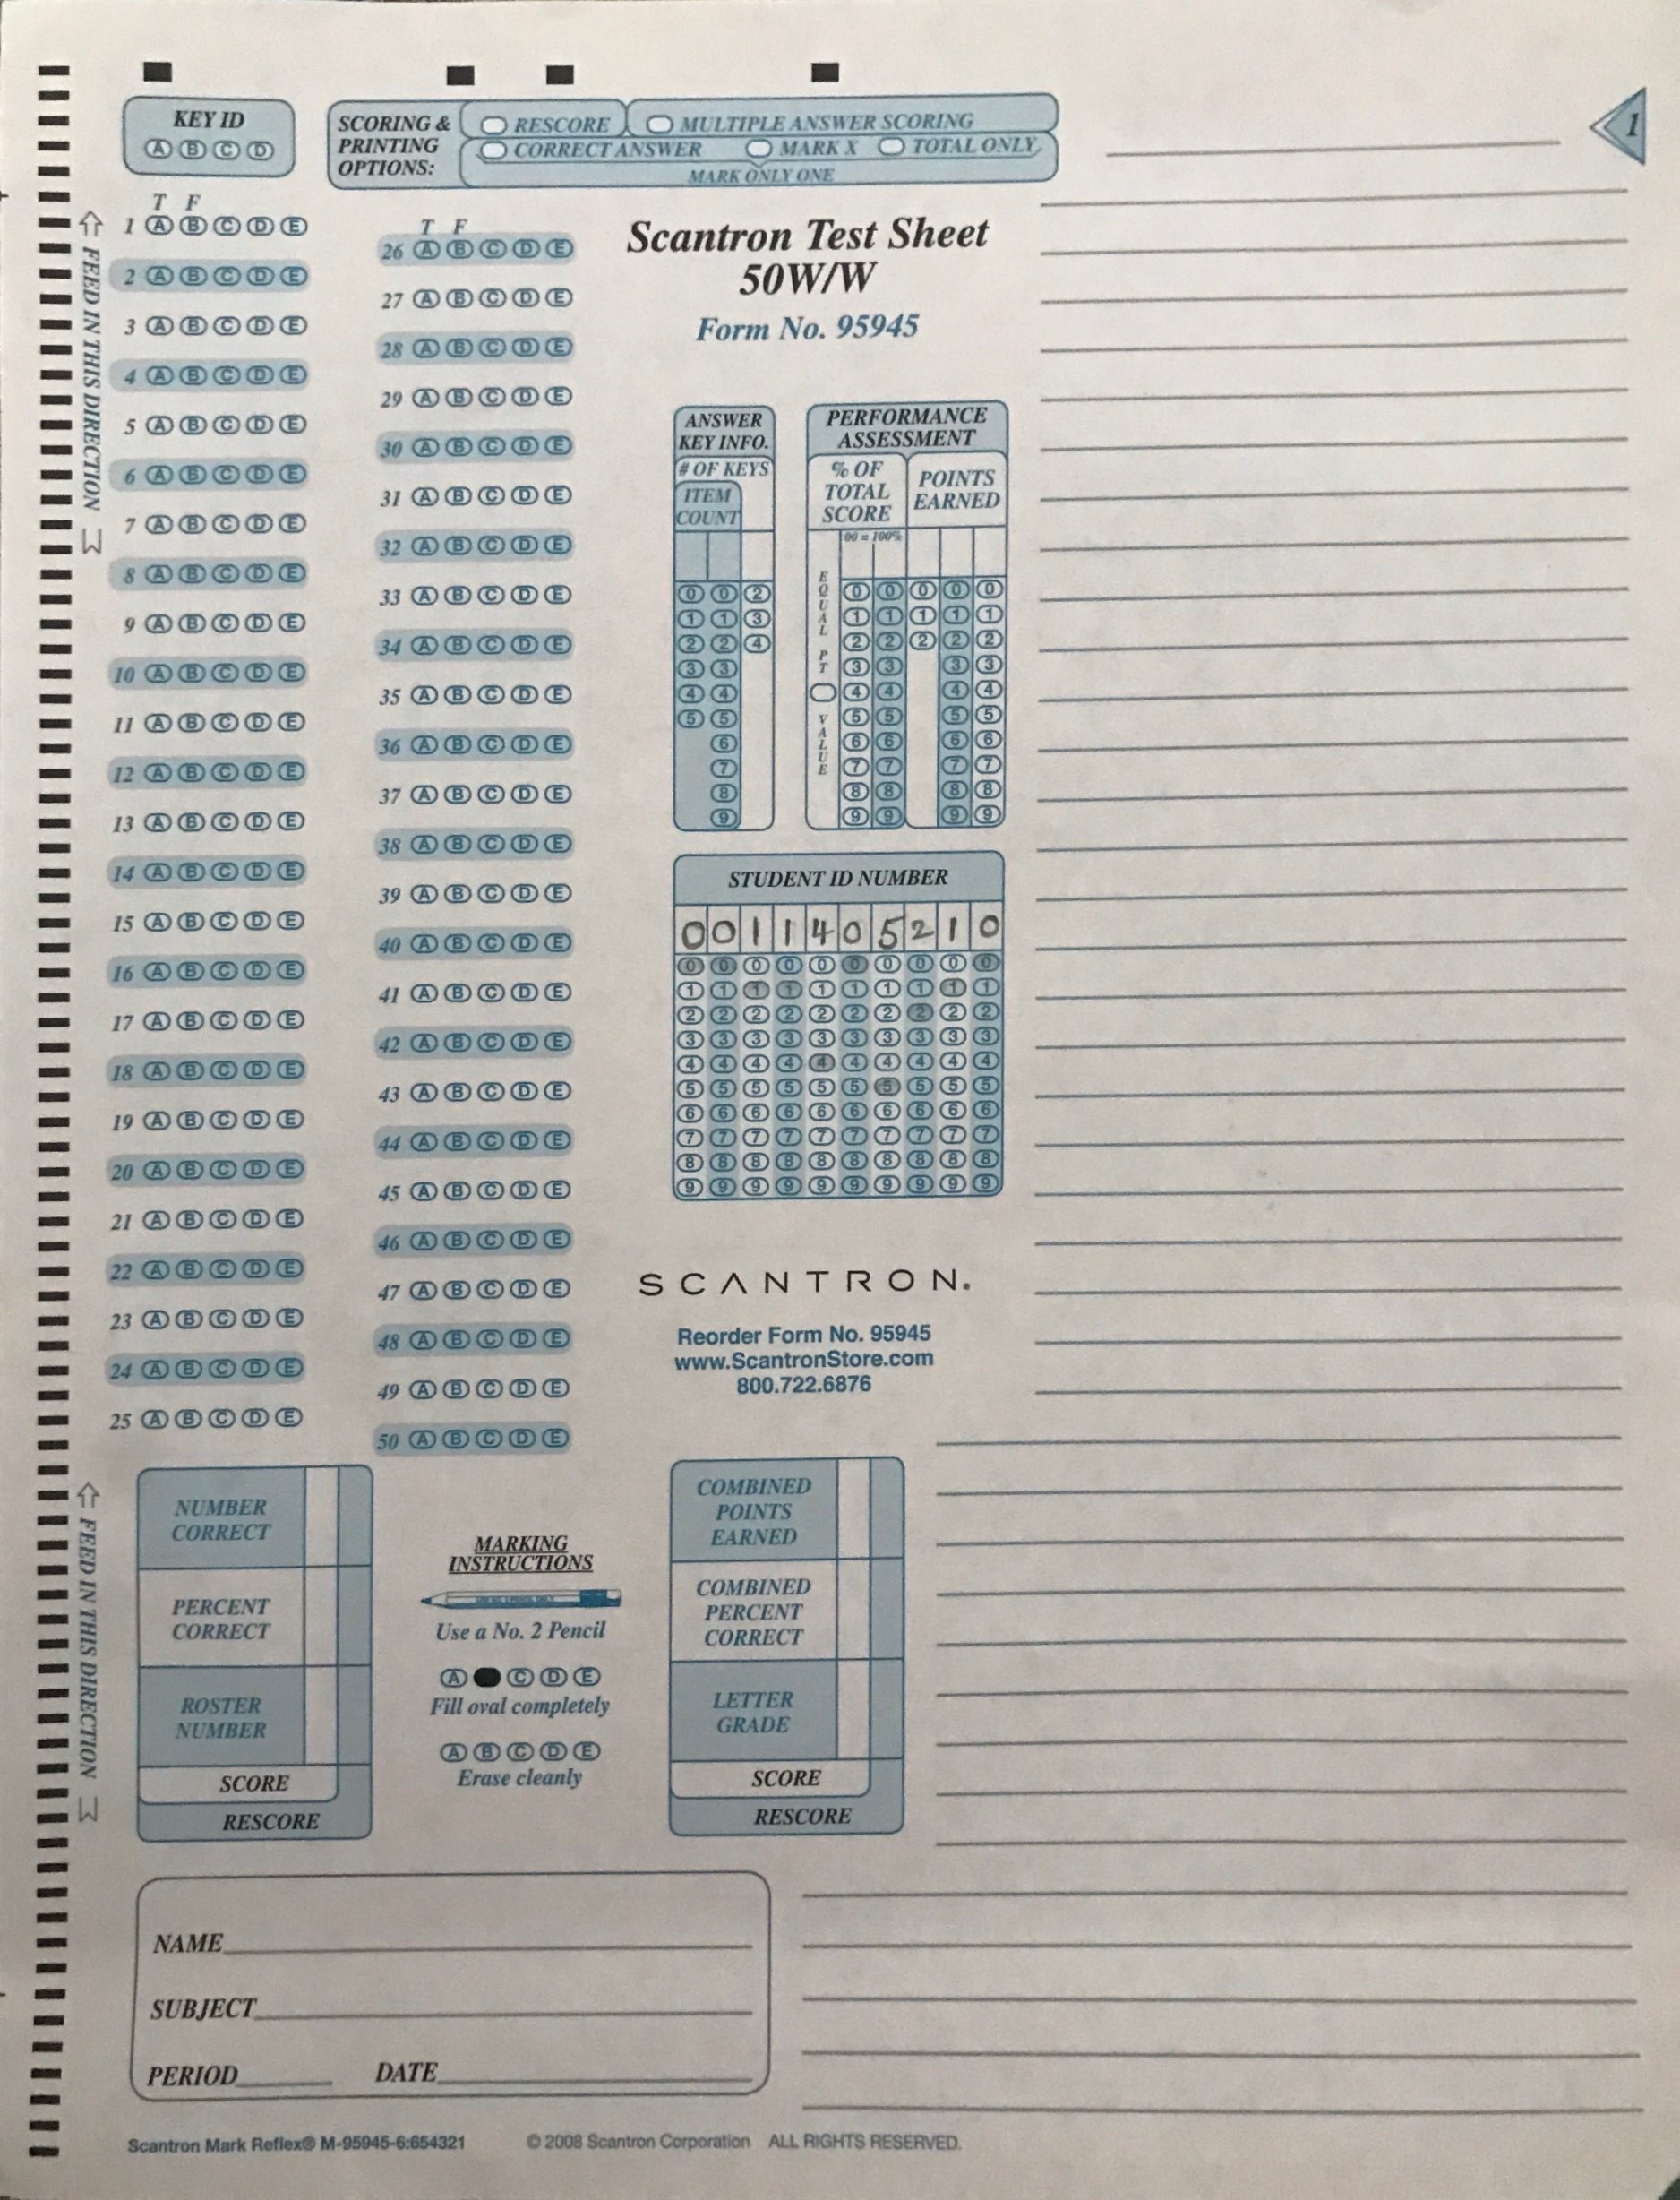 KEY ID
A B C D
SCORING &
PRINTING
OPTIONS:
RESCORE
MULTIPLE ANSWER SCORING
CORRECT ANSWER MARK X TOTAL ONLY
MARK ONLY ONE
1
FEED IN THIS DIRECTION
T F
1 A B C D E
2 A B C D E
3 A B C D E
4 A B C D E
5 A B C D E
6 A B C D E
7 A B C D E
8 A B C D E
9 A B C D E
10 A B C D E
11 A B C D E
12 A B C D E
13 A B C D E
14 A B C D E
15 A B C D E
16 A B C D E
17 A B C D E
18 A B C D E
19 A B C D E
20 A B C D E
21 A B C D E
22 A B C D E
23 A B C D E
24 A B C D E
25 A B C D E
T F
26 A B C D E
27 A B C D E
28 A B C D E
29 A B C D E
30 A B C D E
31 A B C D E
32 A B C D E
33 A B C D E
34 A B C D E
35 A B C D E
36 A B C D E
37 A B C D E
38 A B C D E
39 A B C D E
40 A B C D E
41 A B C D E
42 A B C D E
43 A B C D E
44 A B C D E
45 A B C D E
46 A B C D E
47 A B C D E
48 A B C D E
49 A B C D E
50 A B C D E
Scantron Test Sheet
50W/W
Form No. 95945
ANSWER
KEY INFO.
# OF KEYS
ITEM
COUNT
0 0 2
1 1 3
2 2 4
3 3
4 4
5 5
6
7
8
9
PERFORMANCE
ASSESSMENT
% OF
TOTAL
SCORE
POINTS
EARNED
00 = 100%
EQUAL PT VALUE
0 0 0 0 0
1 1 1 1 1
2 2 2 2 2
3 3 3 3
4 4 4 4
5 5 5 5
6 6 6 6
7 7 7 7
8 8 8 8
9 9 9 9
STUDENT ID NUMBER
0 0 1 1 4 0 5 2 1 0
0 0 0 0 0 0 0 0 0 0
1 1 1 1 1 1 1 1 1 1
2 2 2 2 2 2 2 2 2 2
3 3 3 3 3 3 3 3 3 3
4 4 4 4 4 4 4 4 4 4
5 5 5 5 5 5 5 5 5 5
6 6 6 6 6 6 6 6 6 6
7 7 7 7 7 7 7 7 7 7
8 8 8 8 8 8 8 8 8 8
9 9 9 9 9 9 9 9 9 9
SCANTRON.
Reorder Form No. 95945
www.ScantronStore.com
800.722.6876
FEED IN THIS DIRECTION
NUMBER
CORRECT
PERCENT
CORRECT
ROSTER
NUMBER
SCORE
RESCORE
MARKING
INSTRUCTIONS
Use a No. 2 Pencil
A C D E
Fill oval completely
A B C D E
Erase cleanly
COMBINED
POINTS
EARNED
COMBINED
PERCENT
CORRECT
LETTER
GRADE
SCORE
RESCORE
NAME
SUBJECT
PERIOD DATE
Scantron Mark Reflex® M-95945-6:654321 © 2008 Scantron Corporation ALL RIGHTS RESERVED.